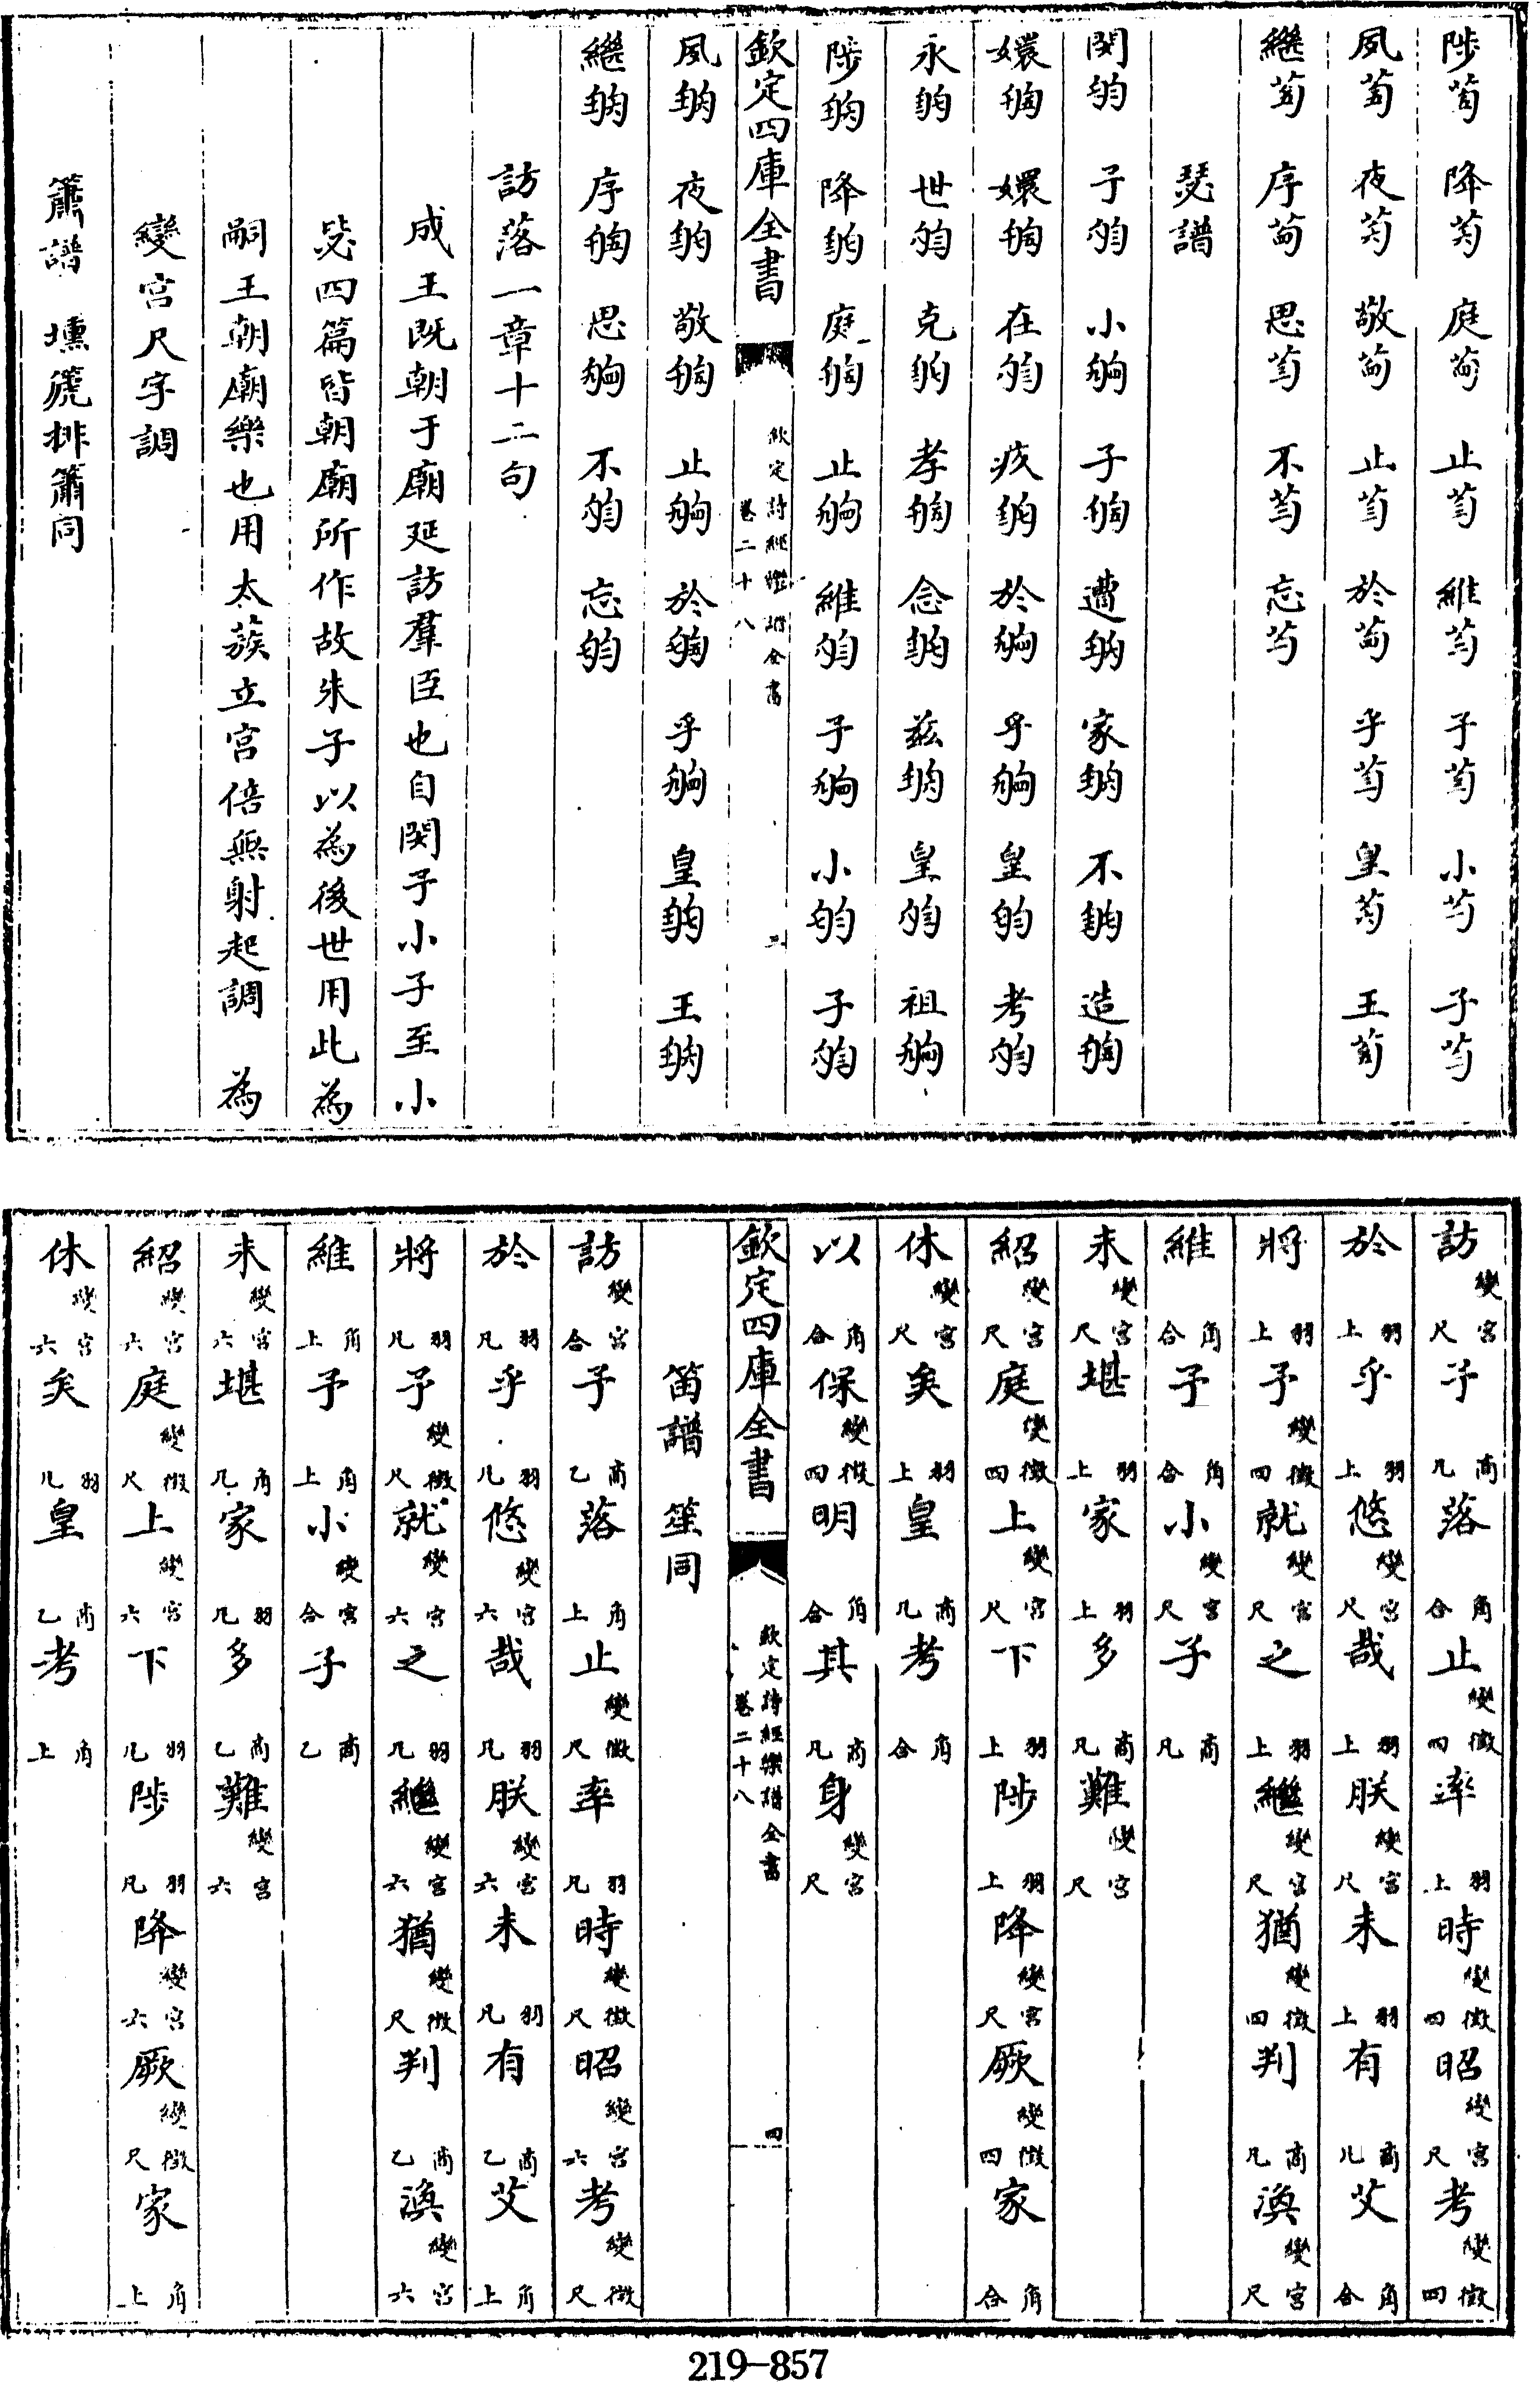 陟 降 庭 止 維 子 小 子
夙 夜 敬 止 於 乎 皇 王
繼 序 思 不 忘
瑟譜
閔 予 小 子 遭 家 不 造
嬛 嬛 在 疚 於 乎 皇 考
永 世 克 孝 念 兹 皇 祖
陟 降 庭 止 維 予 小 子
欽定四庫全書 欽定詩經樂譜全書 卷二十八 三
夙 夜 敬 止 於 乎 皇 王
繼 序 思 不 忘
訪落一章十二句
成王既朝于廟延訪羣臣也自閔予小子至小
毖四篇皆朝廟所作故朱子以為後世用此為
嗣王朝廟樂也用太蔟立宮倍無射起調 為
變宮尺字調
簫譜 壎篪排簫同
訪變宮尺 予商凡 落角合 止變徵四 率羽上 時變徵四 昭變宮尺 考變徵四
於羽上 乎羽上 悠變宮尺 哉羽上 朕變宮尺 未羽上 有商凡 艾角合
將羽上 予變徵四 就變宮尺 之羽上 繼變宮尺 猶變徵四 判商凡 渙變宮尺
維角合 予角合 小變宮尺 子商凡
未變宮尺 堪羽上 家羽上 多商凡 難變宮尺
紹變宮尺 庭變徵四 上變宮尺 下羽上 陟羽上 降變宮尺 厥變徵四 家角合
休變宮尺 矣羽上 皇商凡 考角合
以角合 保變徵四 明角合 其商凡 身變宮尺
欽定四庫全書 欽定詩經樂譜全書 卷二十八 四
笛譜 笙同
訪變宮合 予商乙 落角上 止變徵尺 率羽凡 時變徵尺 昭變宮六 考變徵尺
於羽凡 乎羽凡 悠變宮六 哉羽凡 朕變宮六 未羽凡 有商乙 艾角上
將羽凡 予變徵尺 就變宮六 之羽凡 繼變宮六 猶變徵尺 判商乙 渙變宮六
維角上 予角上 小變宮合 子商乙
未變宮六 堪角凡 家羽凡 多商乙 難變宮六
紹變宮六 庭變徵尺 上變宮六 下羽凡 陟羽凡 降變宮六 厥變徵尺 家角上
休變宮六 矣羽凡 皇商乙 考角上
219-857